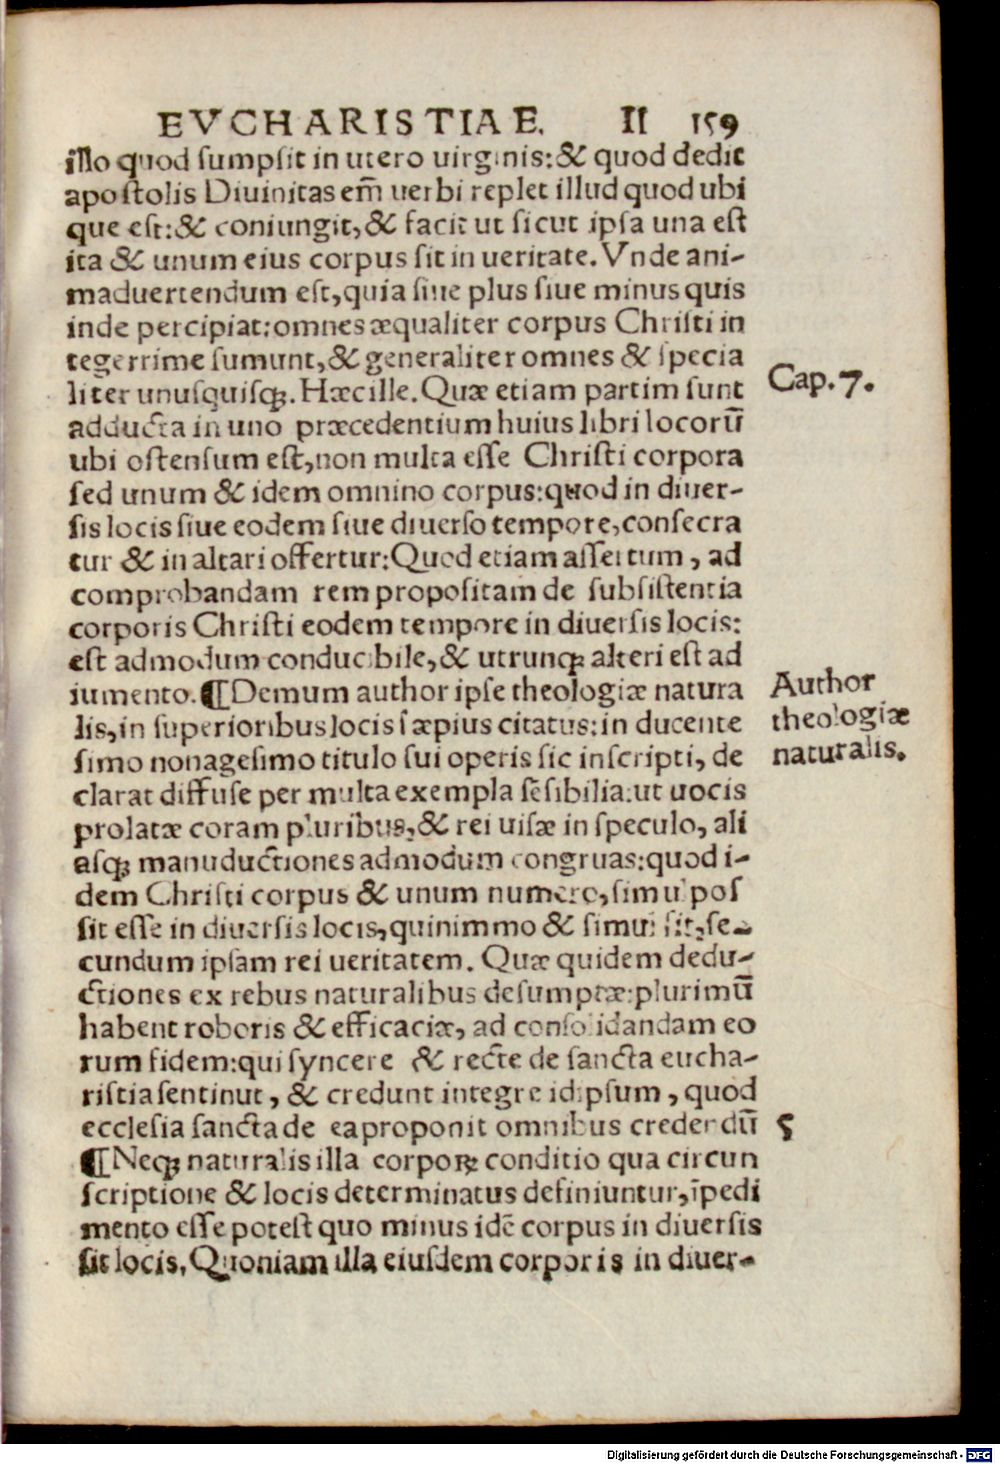 EVCHARISTIAE. II 159
illo quod sumpsit in utero uirginis:& quod dedit
apostolis Diuinitas em̃ uerbi replet illud quod ubi
que est:& coniungit,& facit ut sicut ipsa una est
ita & unum eius corpus sit in ueritate. Vnde ani-
maduertendum est,quia siue plus siue minus quis
inde percipiat:omnes æqualiter corpus Christi in
tegerrime sumunt,& generaliter omnes & specia
liter unusquisqꝫ. Hæc ille. Quæ etiam partim sunt
Cap. 7.
adducta in uno præcedentium huius libri locorũ
ubi ostensum est,non multa esse Christi corpora
sed unum & idem omnino corpus:quod in diuer-
sis locis siue eodem siue diuerso tempore,consecra
tur & in altari offertur:Quod etiam assertum, ad
comprobandam rem propositam de subsistentia
corporis Christi eodem tempore in diuersis locis:
est admodum conducibile,& utrunqꝫ alteri est ad
iumento. ¶Demum author ipse theologiæ natura
Author
theologiæ
naturalis.
lis,in superioribus locis sæpius citatus:in ducente
simo nonagesimo titulo sui operis sic inscripti, de
clarat diffuse per multa exempla sẽsibilia:ut uocis
prolatæ coram pluribus,& rei uisæ in speculo, ali
asqꝫ manuductiones admodum congruas:quod i-
dem Christi corpus & unum numero,simul pos
sit esse in diuersis locis,quinimmo & simul sit,se-
cundum ipsam rei ueritatem. Quæ quidem dedu-
ctiones ex rebus naturalibus desumptæ:plurimũ
habent roboris & efficaciæ, ad consolidandam eo
rum fidem:qui syncere & recte de sancta eucha-
ristia sentinut, & credunt integre idipsum, quod
ecclesia sancta de ea proponit omnibus credendũ
¶Neqꝫ naturalis illa corporꝝ conditio qua circun
scriptione & locis determinatus definiuntur,ĩpedi
mento esse potest quo minus idẽ corpus in diuersis
sit locis, Quoniam illa eiusdem corporis in diuer-
Digitalisierung gefördert durch die Deutsche Forschungsgemeinschaft - DFG